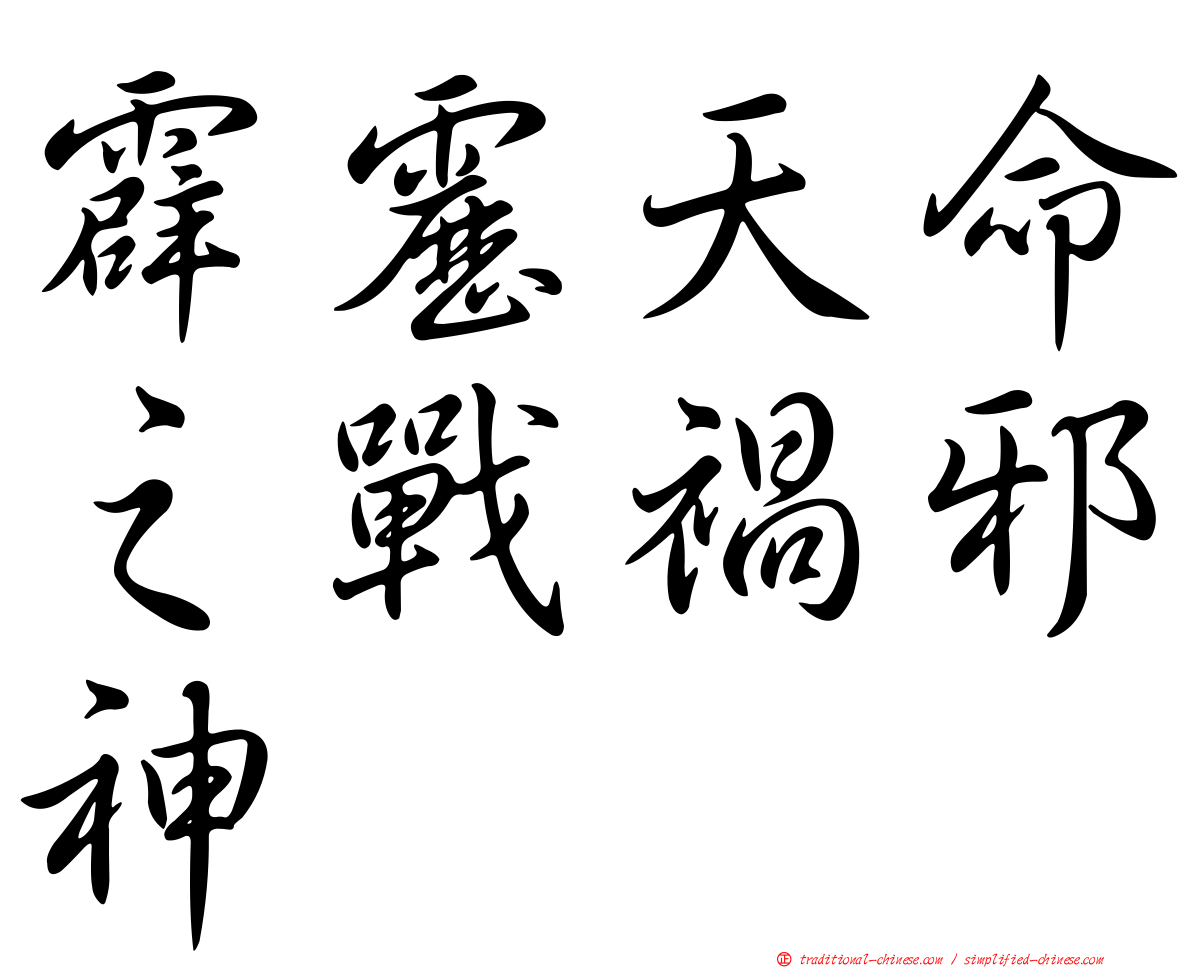 霹靂天命
之戰禍邪
神
正 traditional-chinese.com / simplified-chinese.com